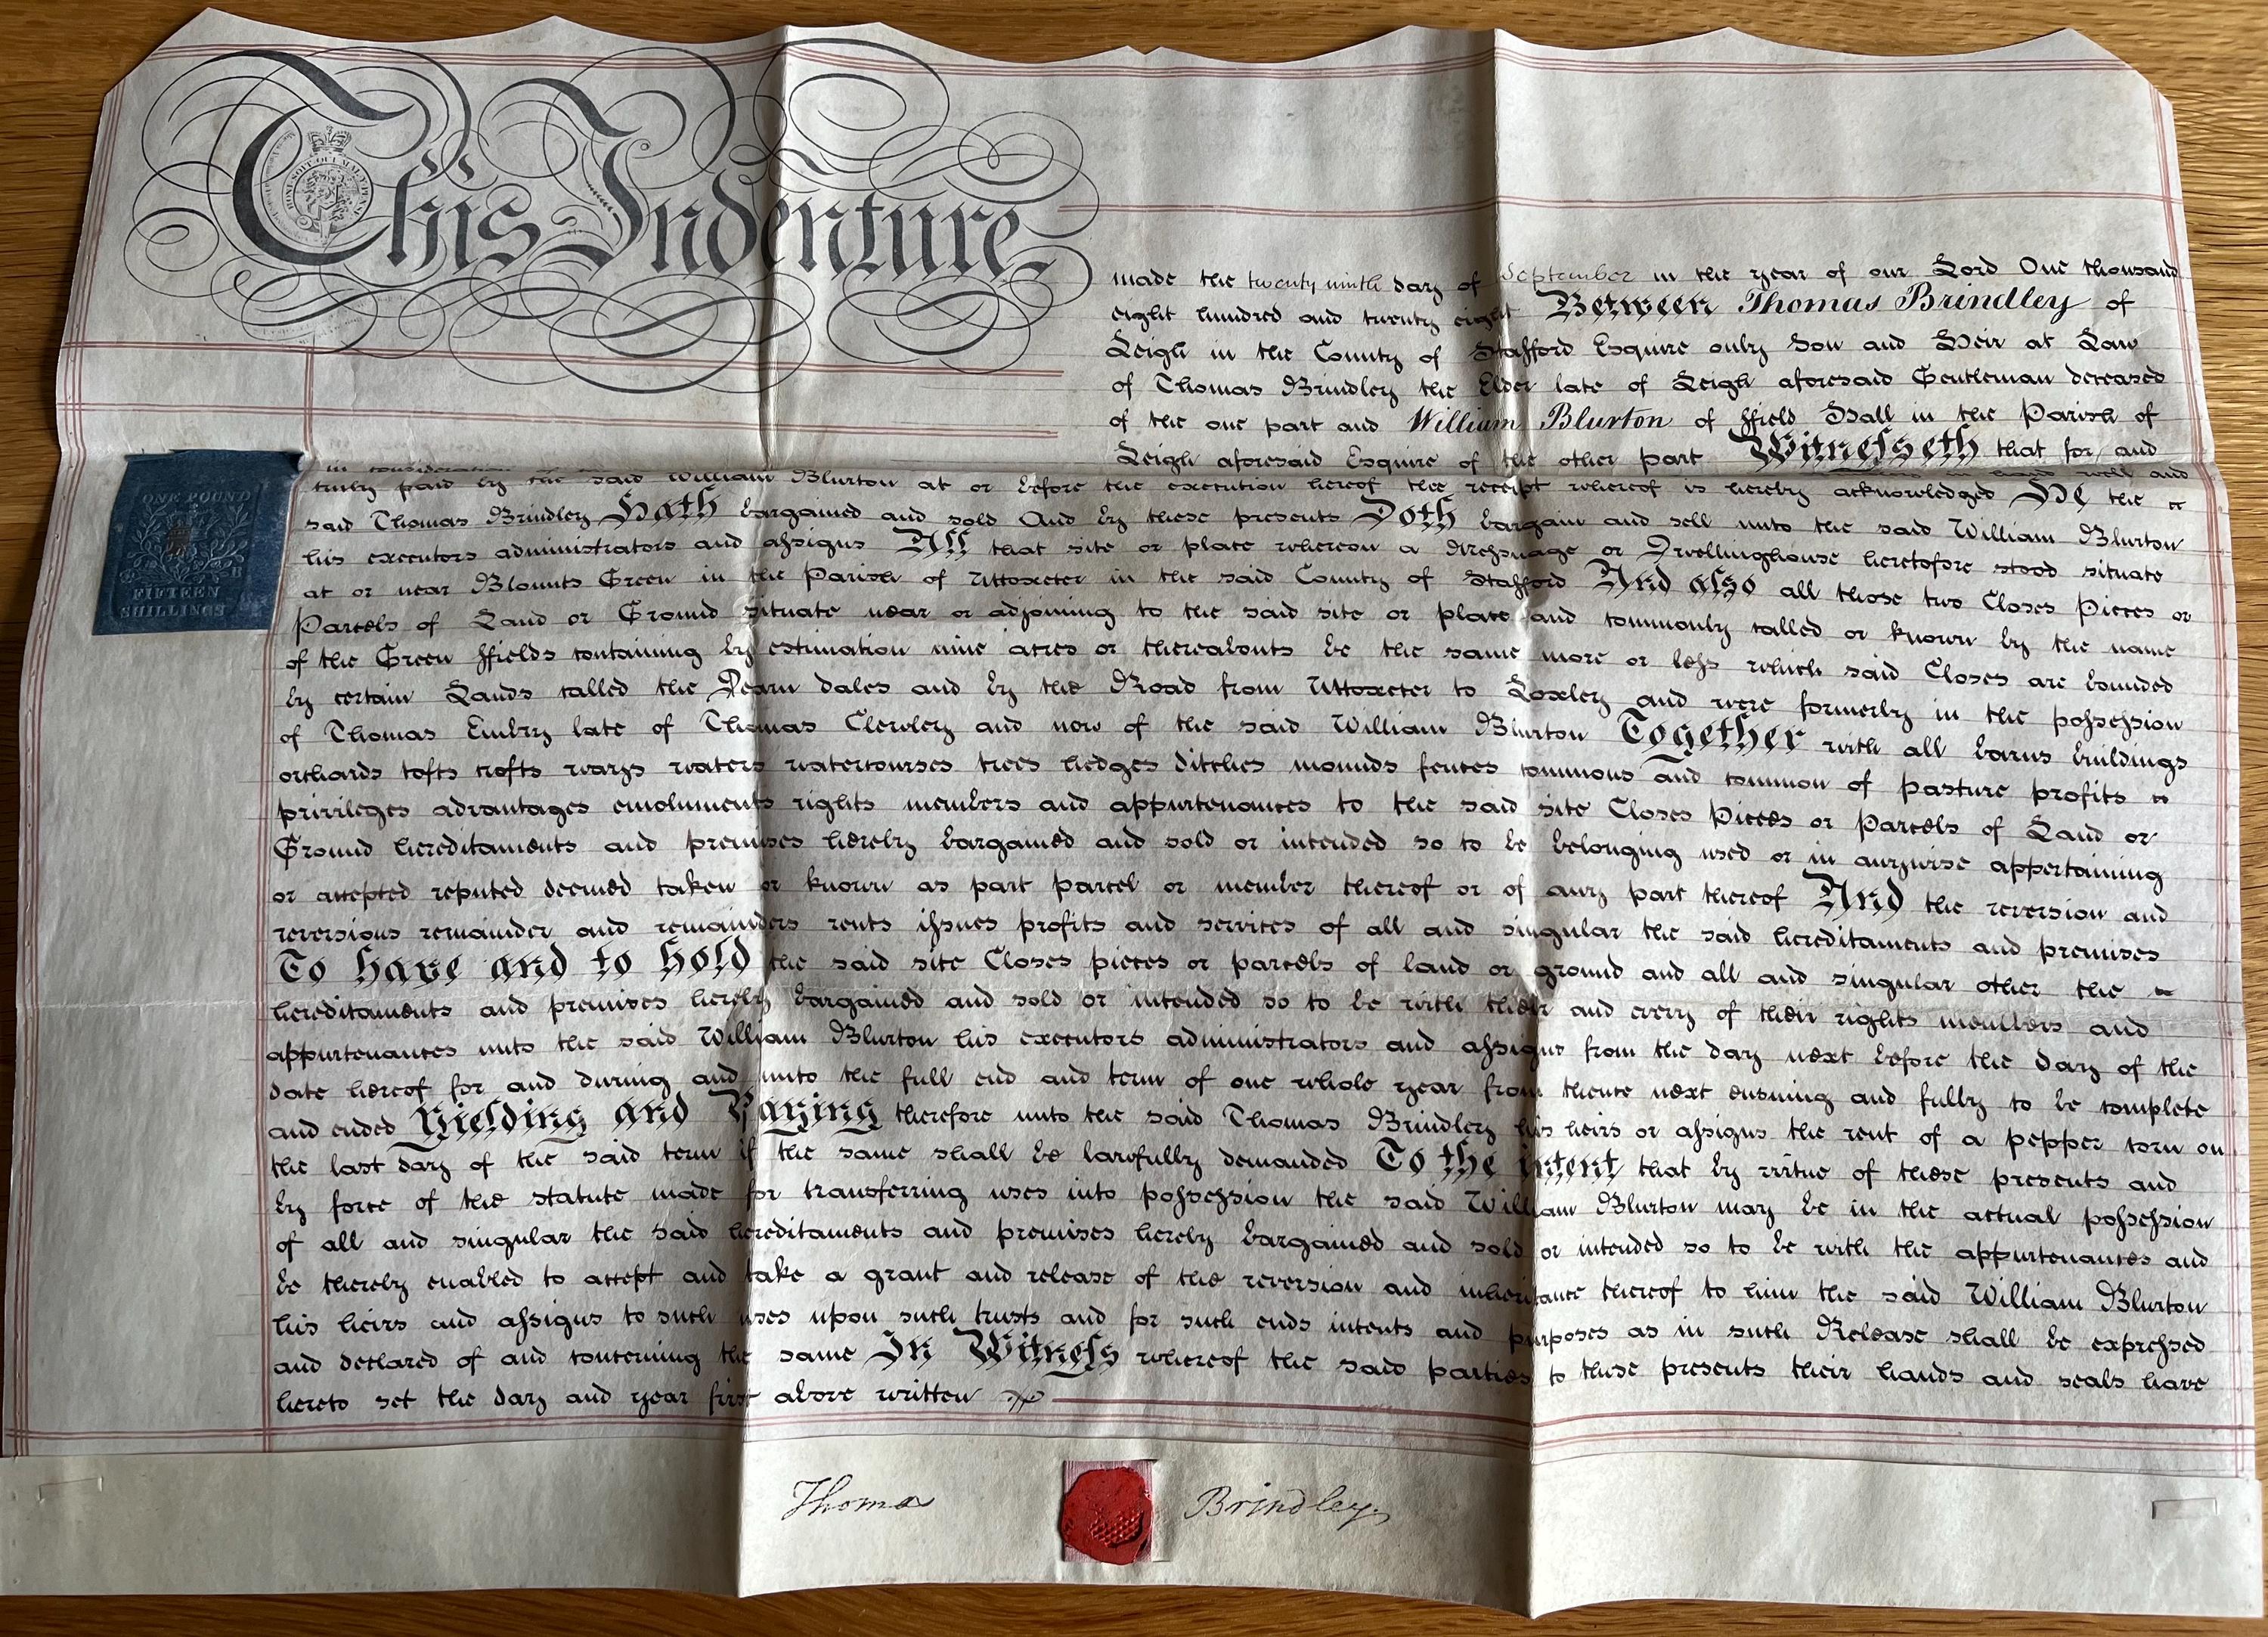 This Indenture
HONI SOIT QUI MAL Y PENSE
made the twenty ninth day of September in the year of our Lord One thousand
eight hundred and twenty eight Between Thomas Brindley of
Leigh in the County of Stafford Esquire only Son and Heir at Law
of Thomas Brindley the Elder late of Leigh aforesaid Gentleman deceased
of the one part and William Blurton of ffield Hall in the Parish of
Leigh aforesaid Esquire of the other part Witnesseth that for and
in consideration of hand well and
truly paid by the said William Blurton at or before the execution hereof the receipt whereof is hereby acknowledged He the
said Thomas Brindley Hath bargained and sold And by these presents Doth bargain and sell unto the said William Blurton
his executors administrators and assigns All that site or place whereon a Messuage or Dwellinghouse heretofore stood situate
at or near Blounts Green in the Parish of Uttoxeter in the said County of Stafford And also all those two Closes Pieces or
Parcels of Land or Ground situate near or adjoining to the said site or place and commonly called or known by the name
of the Green ffields containing by estimation nine acres or thereabouts be the same more or less which said Closes are bounded
by certain Lands called the Dearn dales and by the Road from Uttoxeter to Loxley and were formerly in the possession
of Thomas Embry late of Thomas Clewley and now of the said William Blurton Together with all barns buildings
orchards tofts crofts ways waters watercourses trees hedges ditches mounds fences commons and common of pasture profits
privileges advantages emoluments rights members and appurtenances to the said site Closes Pieces or Parcels of Land or
Ground hereditaments and premises hereby bargained and sold or intended so to be belonging used or in anywise appertaining
or accepted reputed deemed taken or known as part parcel or member thereof or of any part thereof And the reversion and
reversions remainder and remainders rents issues profits and services of all and singular the said hereditaments and premises
To have and to hold the said site Closes pieces or parcels of land or ground and all and singular other the
hereditaments and premises hereby bargained and sold or intended so to be with their and every of their rights members and
appurtenances unto the said William Blurton his executors administrators and assigns from the day next before the day of the
date hereof for and during and unto the full end and term of one whole year from thence next ensuing and fully to be complete
and ended Yielding and Paying therefore unto the said Thomas Brindley his heirs or assigns the rent of a pepper corn on
the last day of the said term if the same shall be lawfully demanded To the intent that by virtue of these presents and
by force of the statute made for transferring uses into possession the said William Blurton may be in the actual possession
of all and singular the said hereditaments and premises hereby bargained and sold or intended so to be with the appurtenances and
be thereby enabled to accept and take a grant and release of the reversion and inheritance thereof to him the said William Blurton
his heirs and assigns to such uses upon such trusts and for such ends intents and purposes as in such Release shall be expressed
and declared of and concerning the same In Witness whereof the said parties to these presents their hands and seals have
hereto set the day and year first above written
ONE POUND
FIFTEEN
SHILLINGS
Thomas Brindley